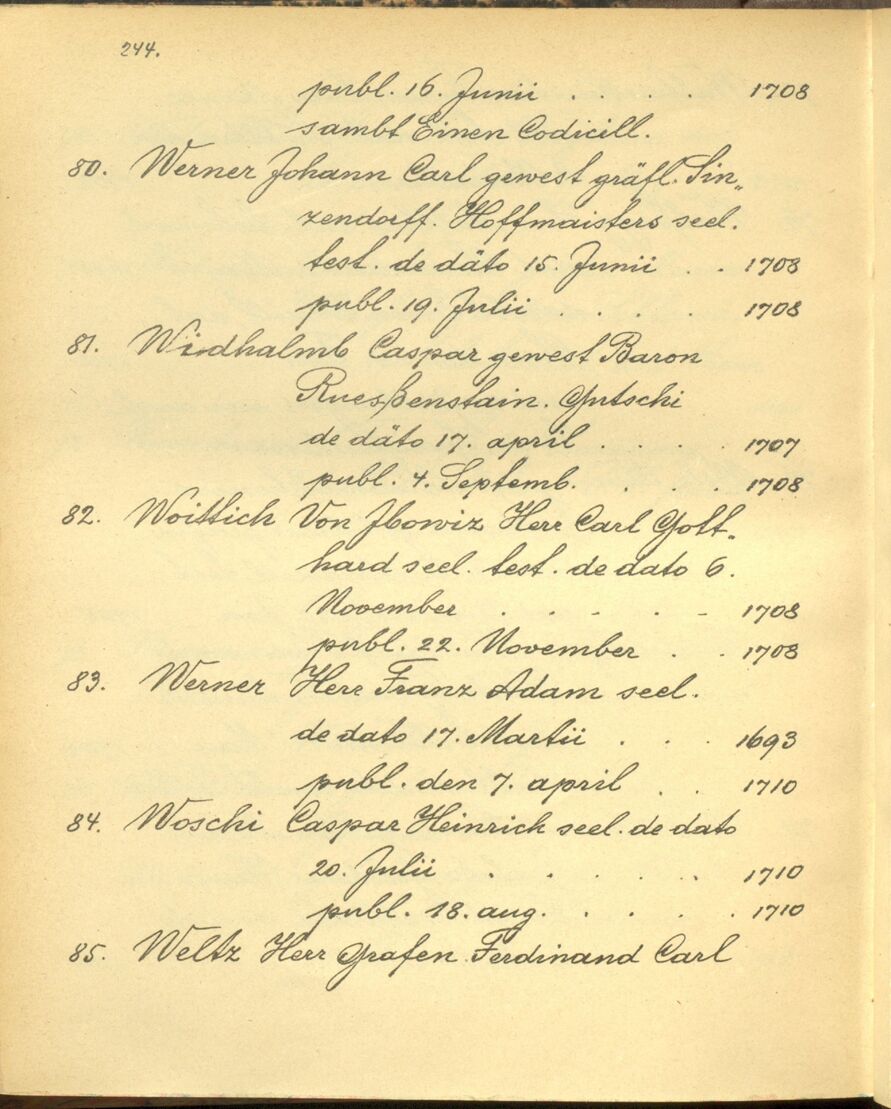 244.
publ. 16. Junii . . . . 1708
sambt Einen Codicill.
80. Werner Johann Carl gewest gräfl. Sin„
zendorff. Hoffmaisters seel.
test. de däto 15. Junii . . 1708
publ. 19. Julii . . . . 1708
81. Windhalmb Caspar gewest Baron
Ruesßenstain. Gutschi
de däto 17. april . . . 1707
publ. 4. Septemb. . . . 1708
82. Woittich Von Jbowiz Herr Carl Gott„
hard seel. test. de dato 6.
November . . . . - 1708
publ. 22. November . . 1708
83. Werner Herr Franz Adam seel.
de dato 17. Martii . . . 1693
publ. den 7. april . . 1710
84. Woschi Caspar Heinrich seel. de dato
20. Julii . . . . . 1710
publ. 18. aug. . . . . 1710
85. Weltz Herr Grafen Ferdinand Carl